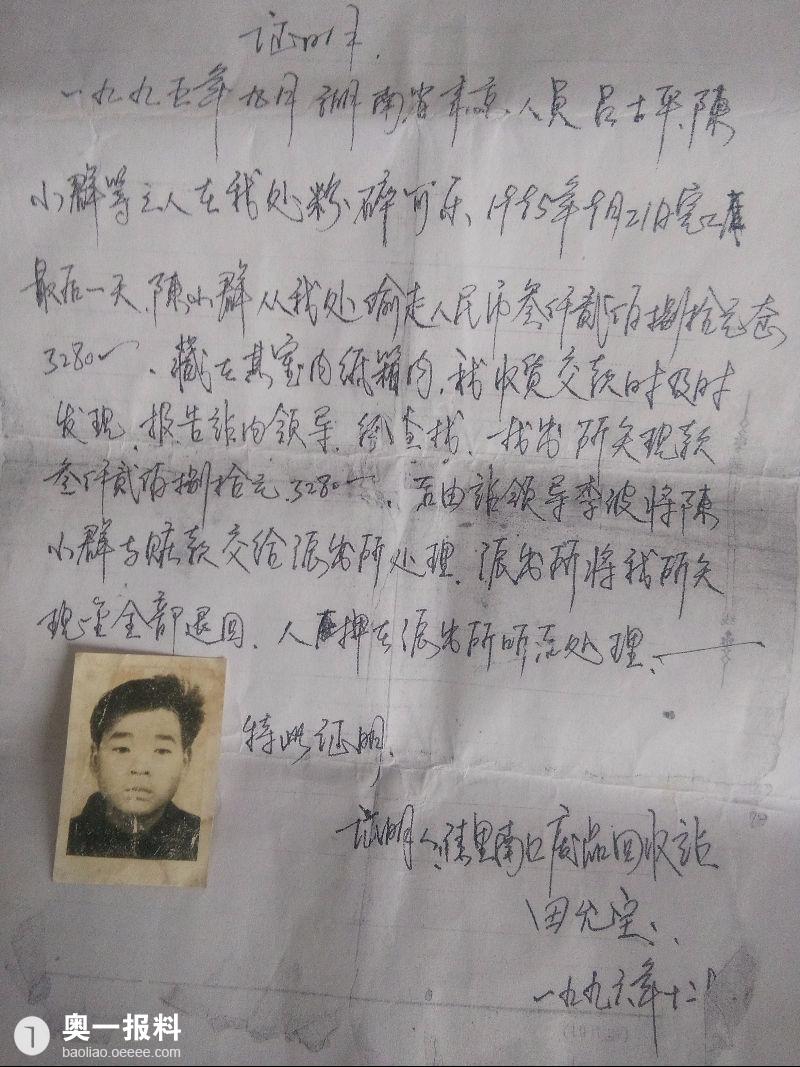 证明
一九九五年九月湖南省来京人员吕古平、陳
小群等三人在我处粉碎可乐、1995年9月21日完工
最后一天、陳小群从我处偷走人民币叁仟贰佰捌拾元
3280、藏在其室内纸箱内、我收货交款时及时
发现、报告站内领导、经查找、找出所失现款
叁仟贰佰捌拾元、3280、后由站领导李波将陳
小群与赃款交给派出所处理、派出所将我所失
现金全部退回、人押在派出所听后处理、
特此证明、
证明人 南口废品回收站
田允宝、
一九九六年十二
奥一报料
baoliao.oeeee.com